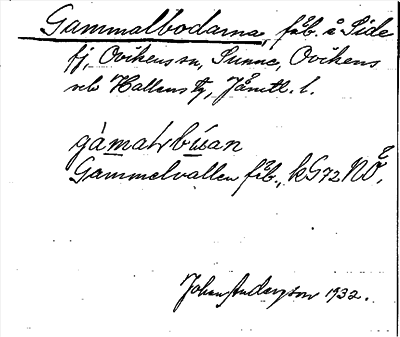 Gammalbodarna, fäb. i Side
fj, Ovikens sn, Sunne, Ovikens
och Hallens tg, Jämtl. l.
gàmatbu̇san
Gammelvallen fäb., kG72NÖ.
Johan Anderzon 1932.